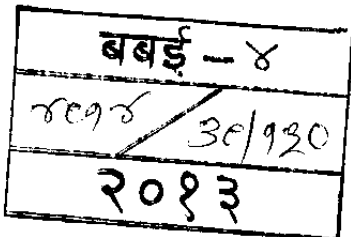 बबई - ४
४८१४ / ३८/१३०
२०१३